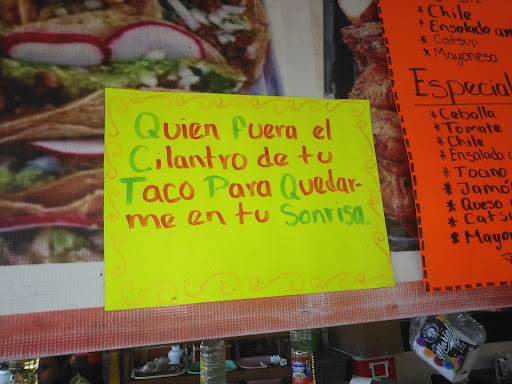 Quien fuera el
Cilantro de tu
Taco Para Quedar-
me en tu Sonrisa.
* Chile
* Ensalada
* Catsup
* Mayonesa
Especial
* Cebolla
* Tomate
* Chile
* Ensalada
* Tocino
* Jamón
* Queso
* Cats
* Mayon